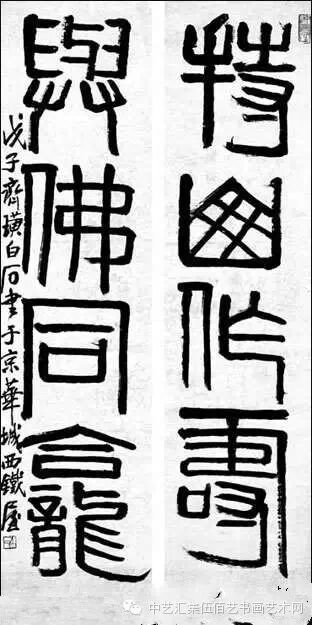 持山作壽
與佛同龕
戊子齊璜白石書于京華城西鐵屋
中艺汇集伍佰艺书画艺术网